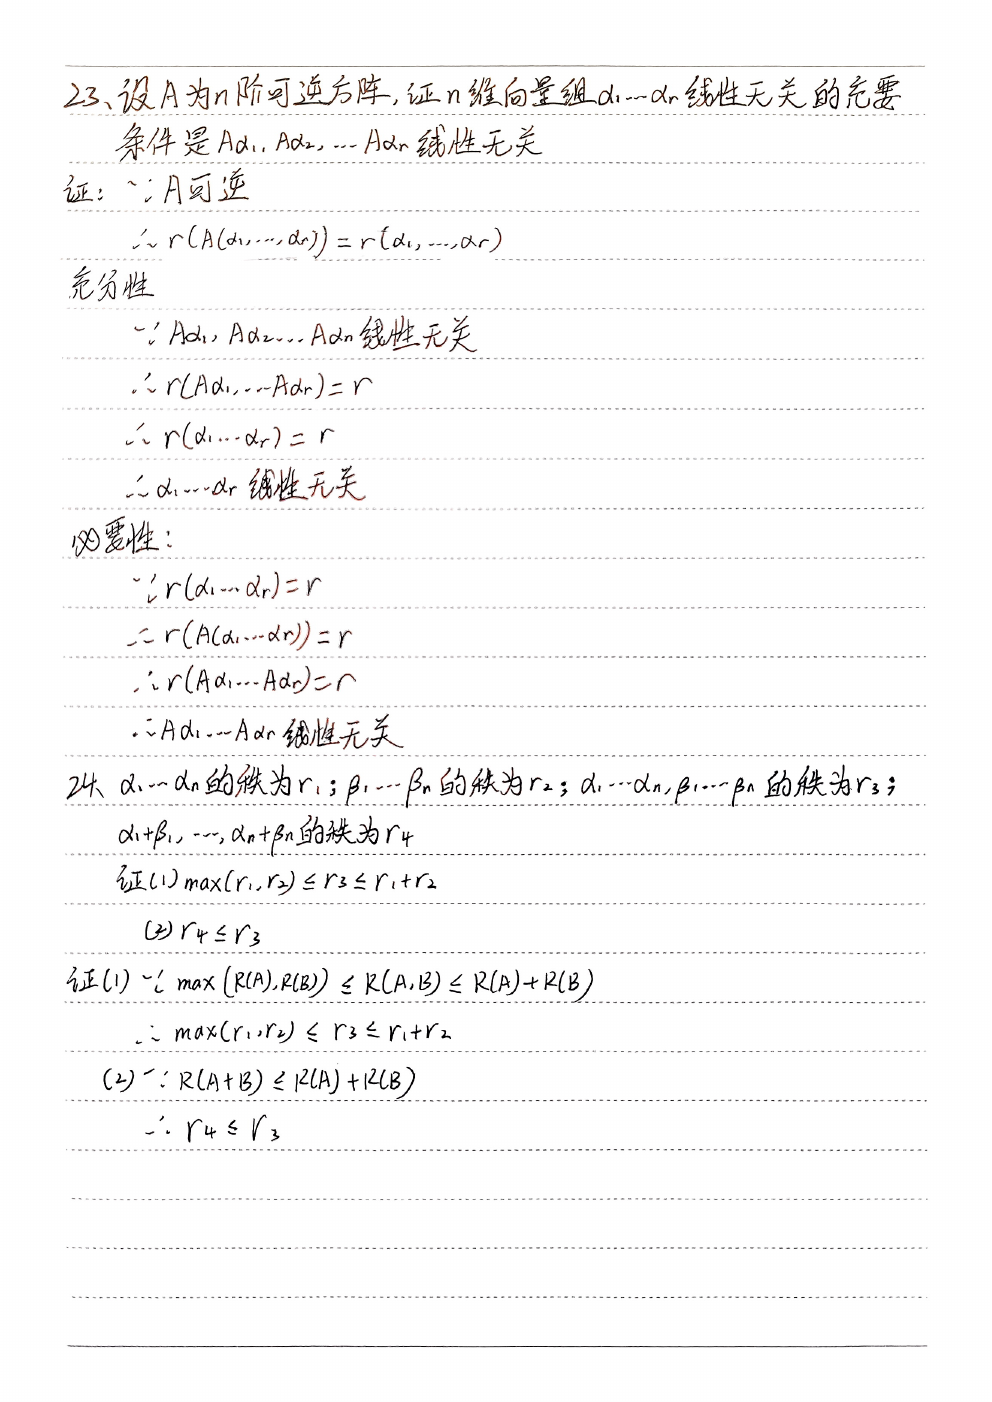 23、设A为n阶可逆方阵,证n维向量组α₁…αᵣ线性无关的充要
条件是Aα₁, Aα₂, … Aαᵣ线性无关
证: ∵A可逆
∴ r(A(α₁,…,αᵣ)) = r(α₁,…,αᵣ)
充分性
∵ Aα₁, Aα₂…Aαᵣ线性无关
∴ r(Aα₁,…Aαᵣ) = r
∴ r(α₁…αᵣ) = r
∴α₁…αᵣ 线性无关
必要性:
∵ r(α₁…αᵣ) = r
∴ r(A(α₁…αᵣ)) = r
∴ r(Aα₁…Aαᵣ) = r
∴Aα₁…Aαᵣ 线性无关
24、α₁…αₙ的秩为r₁; β₁…βₙ的秩为r₂; α₁…αₙ,β₁…βₙ的秩为r₃;
α₁+β₁, …, αₙ+βₙ的秩为r₄
证(1) max(r₁,r₂) ≤ r₃ ≤ r₁+r₂
(2) r₄ ≤ r₃
证(1) ∵ max(R(A),R(B)) ≤ R(A,B) ≤ R(A)+R(B)
∴ max(r₁,r₂) ≤ r₃ ≤ r₁+r₂
(2) ∵ R(A+B) ≤ R(A)+R(B)
∴ r₄ ≤ r₃